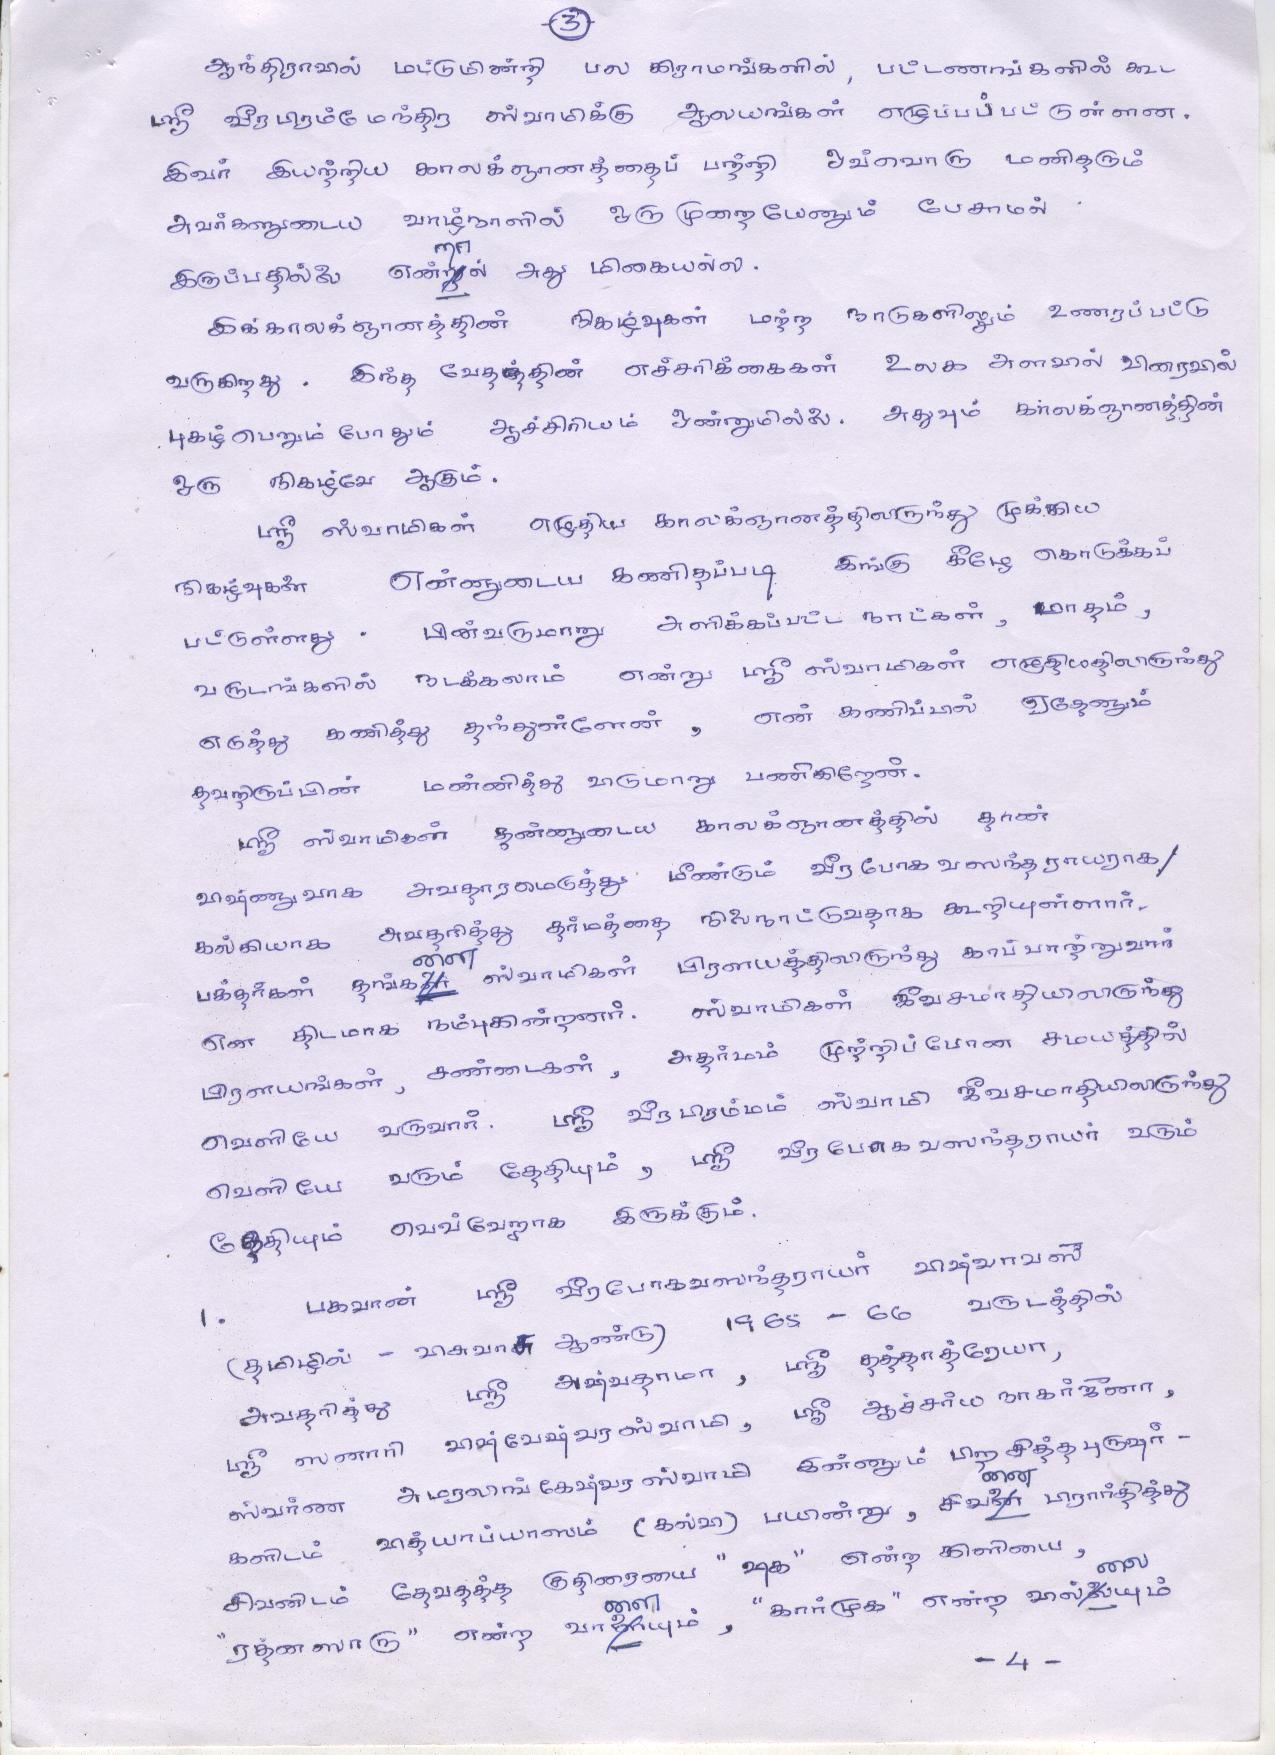 3
ஆந்திராவில் மட்டுமின்றி பல கிராமங்களில், பட்டணங்களில் கூட
ஸ்ரீ வீரபிரம்மேந்திர ஸ்வாமிக்கு ஆலயங்கள் எழுப்பப்பட்டுள்ளன.
இவர் இயற்றிய காலக்ஞானத்தைப் பற்றி ஒவ்வொரு மனிதரும்
அவர்களுடைய வாழ்நாளில் ஒருமுறையேனும் பேசாமல்
இருப்பதில்லை என்றால் அது மிகையல்ல.
இக்காலக்ஞானத்தின் நிகழ்வுகள் மற்ற நாடுகளிலும் உணரப்பட்டு
வருகிறது. இந்த வேதத்தின் எச்சரிக்கைகள் உலக அளவில் விரைவில்
புகழ்பெறும்போதும் ஆச்சிரியம் ஒன்னுமில்லை. அதுவும் காலக்ஞானத்தின்
ஒரு நிகழ்வே ஆகும்.
ஸ்ரீ ஸ்வாமிகள் எழுதிய காலக்ஞானத்திலிருந்து முக்கிய
நிகழ்வுகள் என்னுடைய கணிதப்படி இங்கு கீழே கொடுக்கப்
பட்டுள்ளது. பின்வருமாறு அளிக்கப்பட்ட நாட்கள், மாதம்,
வருடங்களில் நடக்கலாம் என்று ஸ்ரீ ஸ்வாமிகள் எழுதியதிலிருந்து
எடுத்து கணித்து தந்துள்ளேன், என் கணிப்பில் ஏதேனும்
தவறிருப்பின் மன்னித்து விடுமாறு பணிகிறேன்.
ஸ்ரீ ஸ்வாமிகள் தன்னுடைய காலக்ஞானத்தில் தான்
விஷ்ணுவாக அவதாரமெடுத்து மீண்டும் வீரபோகவஸந்தராயராக/
கல்கியாக அவதரித்து தர்மத்தை நிலைநாட்டுவதாக கூறியுள்ளார்.
பக்தர்கள் தங்களை ஸ்வாமிகள் பிரளயத்திலிருந்து காப்பாற்றுவார்
என திடமாக நம்புகின்றனர். ஸ்வாமிகள் ஜீவசமாதியிலிருந்து
பிரளயங்கள், சண்டைகள், அதர்மம் முற்றிப்போன சமயத்தில்
வெளியே வருவார். ஸ்ரீ வீரபிரம்மம் ஸ்வாமி ஜீவசமாதியிலிருந்து
வெளியே வரும் தேதியும், ஸ்ரீ வீரபோகவஸந்தராயர் வரும்
தேதியும் வெவ்வேறாக இருக்கும்.
1. பகவான் ஸ்ரீ வீரபோகவஸந்தராயர் விஷ்வாவஸீ
(தமிழில் - விசுவாசு ஆண்டு) 1965 - 66 வருடத்தில்
அவதரித்து ஸ்ரீ அஷ்வதாமா, ஸ்ரீ தத்தாத்ரேயா,
ஸ்ரீ ஸனாரி விஷ்வேஷ்வரஸ்வாமி, ஸ்ரீ ஆச்சர்ய நாகர்ஜீனா,
ஸ்வர்ண அமரலிங்கேஷ்வரஸ்வாமி இன்னும் பிற சித்தபுருஷர் -
களிடம் வித்யாப்யாஸம் (கல்வி) பயின்று, சிவனை பிரார்தித்து
சிவனிடம் தேவதத்த குதிரையை "ஷுக" என்ற கிளியை,
"ரத்னஸாரு" என்ற வாளையும், "கார்முக" என்ற வில்லையும்
- 4 -